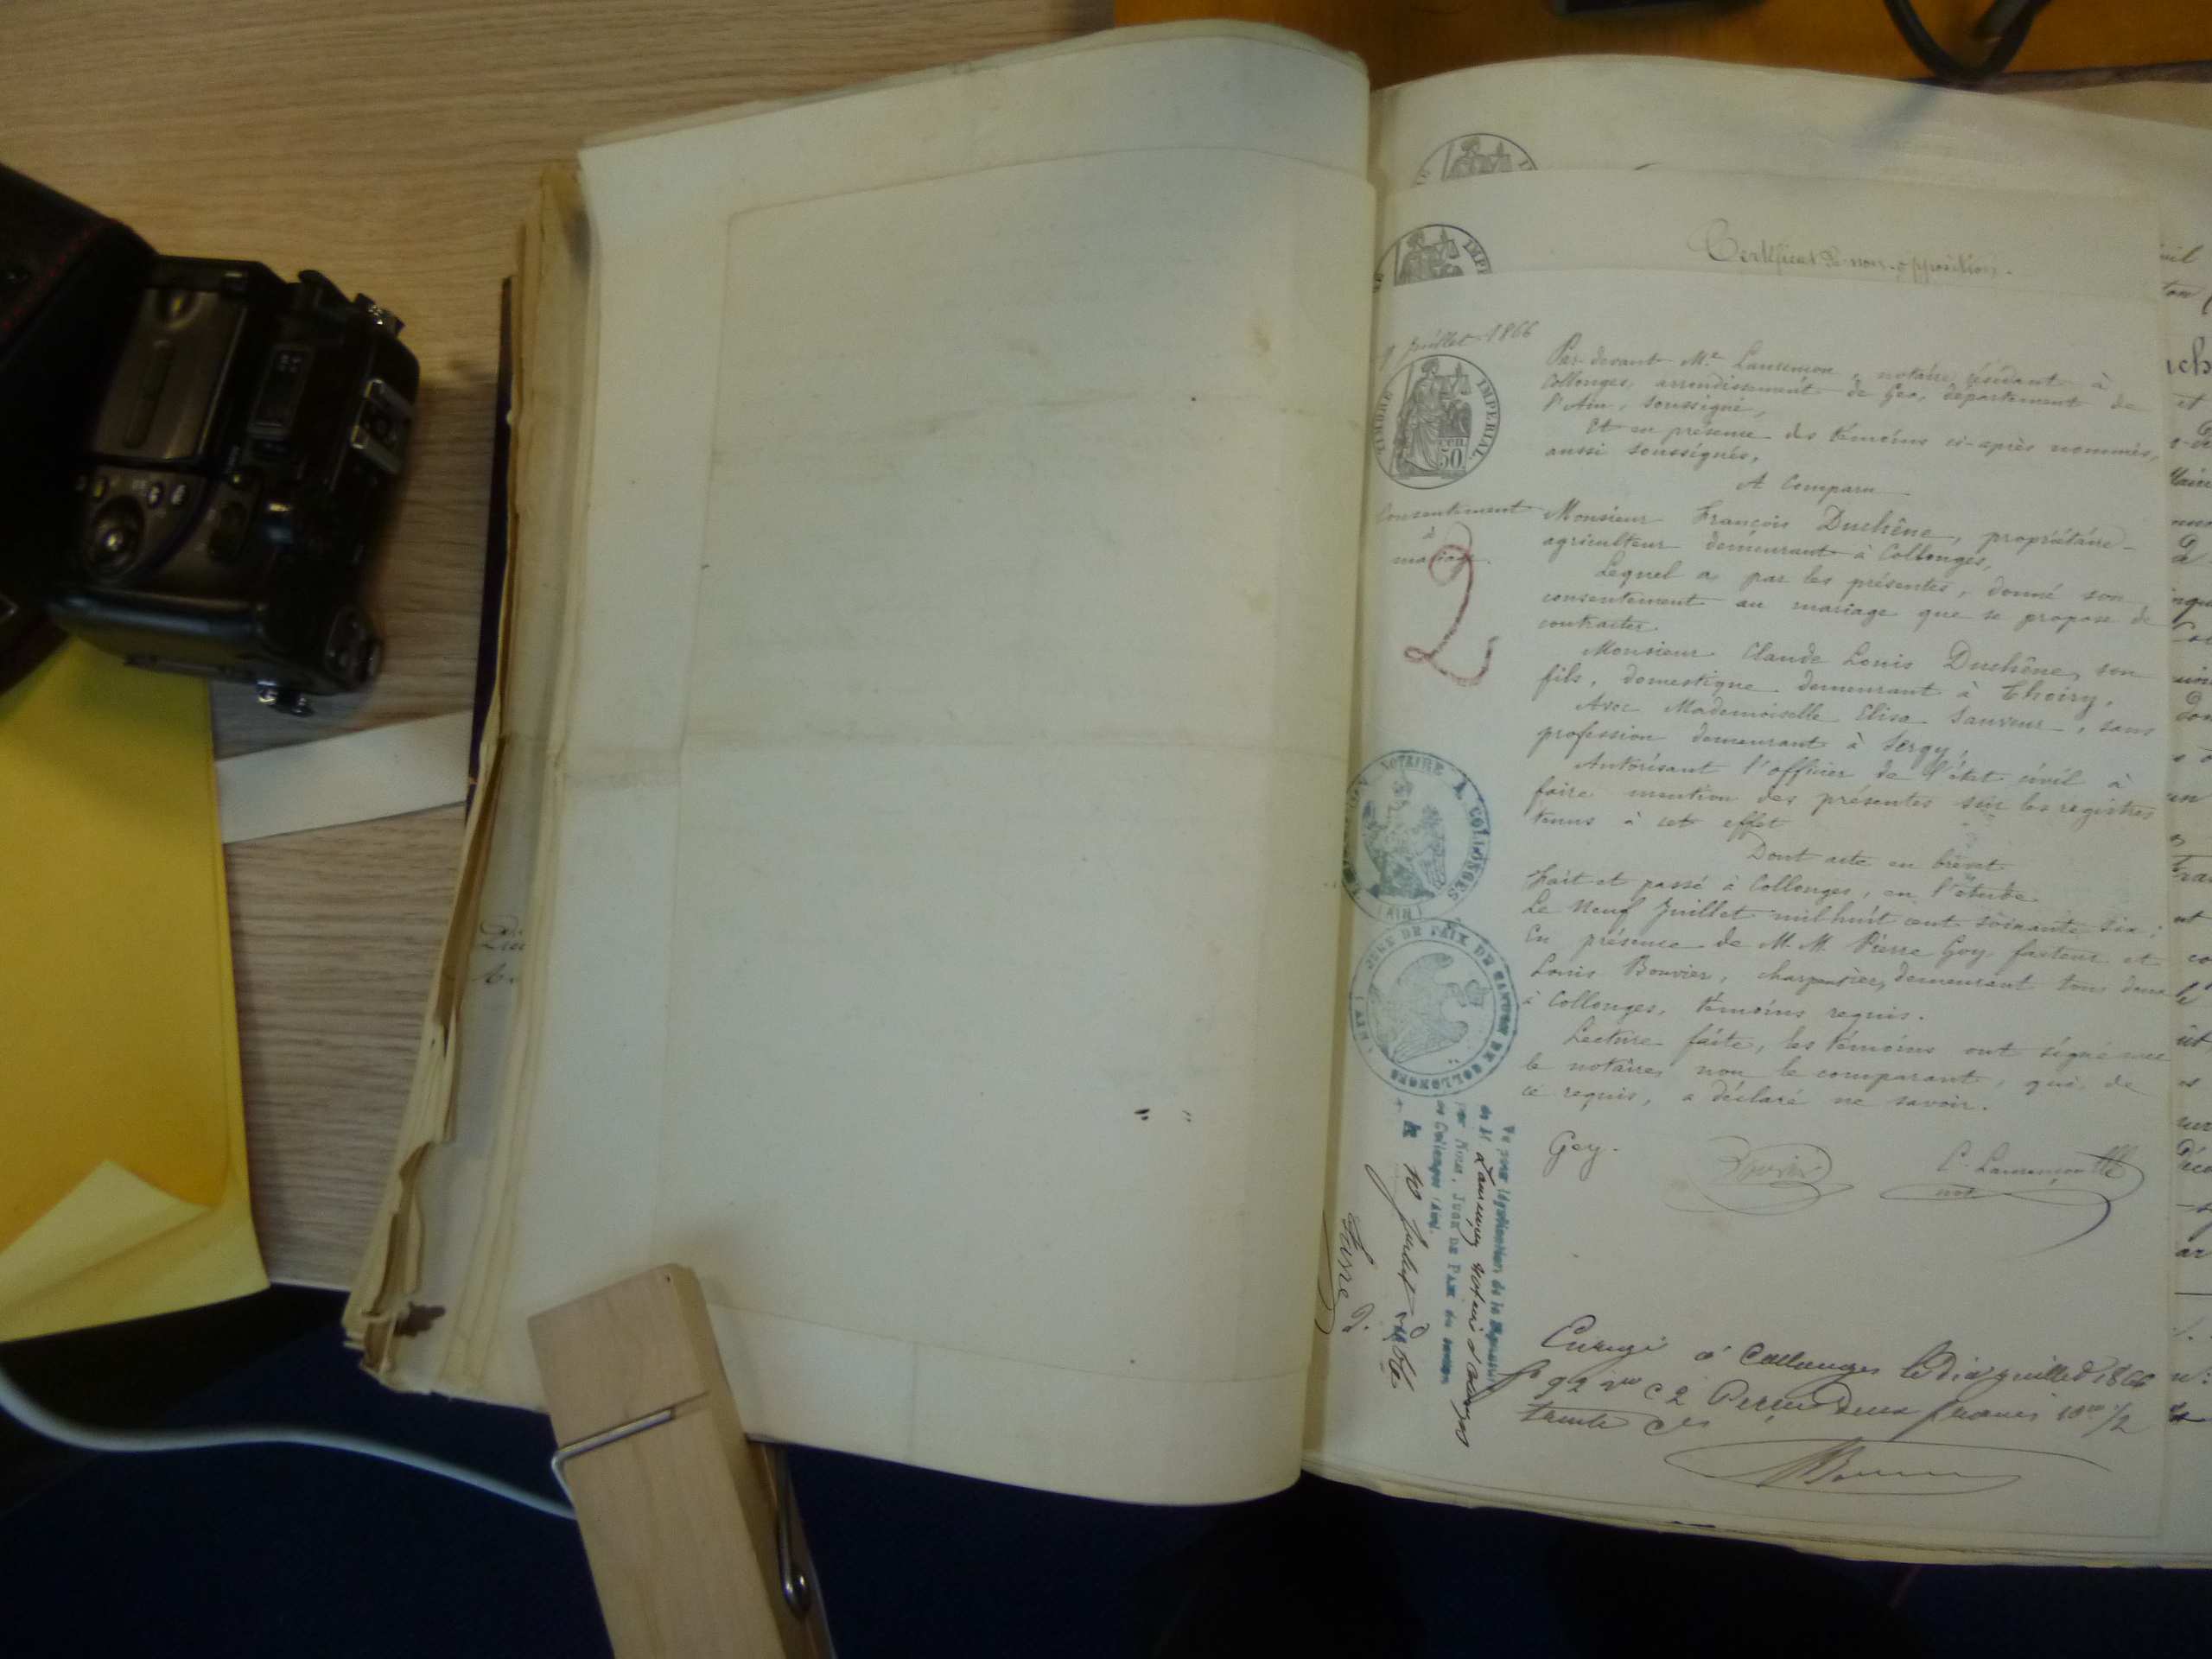 Certificat de non-opposition.
9 Juillet 1866
TIMBRE IMPERIAL
50
Consentement
à
mariage.
2
Par devant Me Laurençon, notaire résidant à
Collonges, arrondissement de Gex, département de
l'Ain, soussigné,
Et en présence des témoins ci-après nommés,
aussi soussignés,
A Comparu
Monsieur François Duchêne, propriétaire-
agriculteur demeurant à Collonges,
Lequel a, par les présentes, donné son
consentement au mariage que se propose de
contracter
Monsieur Claude Louis Duchêne, son
fils, domestique demeurant à Thoiry,
Avec Mademoiselle Elisa Sauveur, sans
profession demeurant à Sergy,
Autorisant l'officier de l'état civil à
faire mention des présentes sur les registres
tenus à cet effet
Dont acte en brevet
Fait et passé à Collonges, en l'étude
Le Neuf Juillet mil huit cent soixante six;
En présence de M. M. Pierre Goy facteur et
Louis Bouvier, charpentier, demeurant tous deux
à Collonges, témoins requis.
Lecture faite, les témoins ont signé avec
le notaire, non le comparant, qui de
ce requis, a déclaré ne savoir.
Goy.
Bouvier
C. Laurençon
not
NOTAIRE A COLLONGES
(AIN)
JUGE DE PAIX DU CANTON DE COLLONGES
Vu pour légalisation de la signature
de M Laurençon notaire à Collonges
par Nous, JUGE DE PAIX du canton
de Collonges (Ain).
le 10 Juillet 1866
Favre
Enregé à Collonges le dix juillet 1866
fo 92 vo c 2 Perçu deux francs 10es 1/2
trente ces